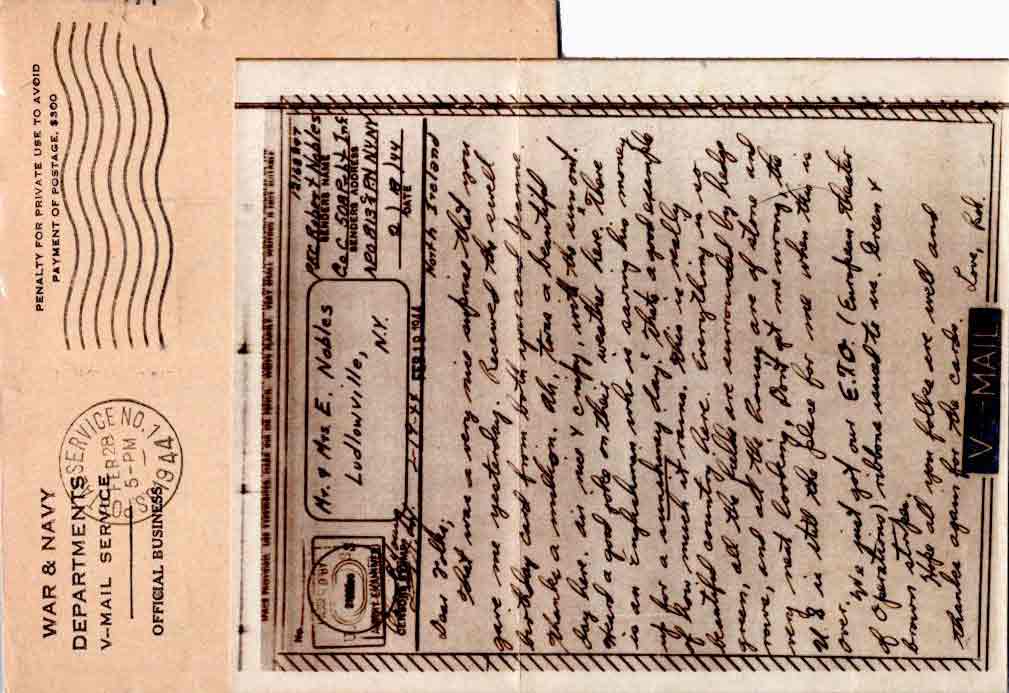 WAR & NAVY
DEPARTMENTS
V–MAIL SERVICE
OFFICIAL BUSINESS
SERVICE NO. 1
FEB 28
5-PM
1944
PENALTY FOR PRIVATE USE TO AVOID
PAYMENT OF POSTAGE, $300
No.
Mr. & Mrs E. Nables
Ludlowville,
N.Y.
Pvt. Robert Nables
SENDERS NAME
Co C 508 Prcht Inf
SENDERS ADDRESS
APO 813 % PM NY NY
2/18/44
DATE
FEB 19 1944
North Ireland
Dear Folks,
That was a very nice surprise that you
gave me yesterday. Received the swell
birthday card from both you and
Thanks a million. Ah, tows a beautiful
day here, its nice & crispy, with the
Heard a good joke on their weather here. There
is an Englishman who is saving his money
up for a rainy day; thats a good example
of how much it rains. This is really
beautiful country here. Everything is so
green, all the fields are surrounded by hedge
rows, and all the homes are of stone and
very neat looking, Don't get me wrong, the
U.S is still the place for me when this is
over. We just got our E.T.O. (European theater
of Operations) ribbons issued to us. Green &
brown stripes.
Hope all you folks are well and
thanks again for the cards.
Love, Bob.
V–MAIL